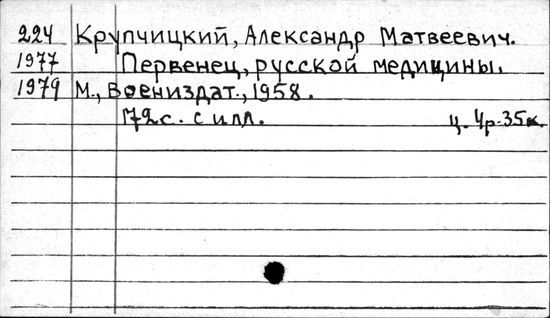 224 Крупчицкий, Александр Матвеевич.
1977 Первенец, русской медицины.
1979 М., Воениздат., 1958.
172с. с илл. ц. 4р. 35к.